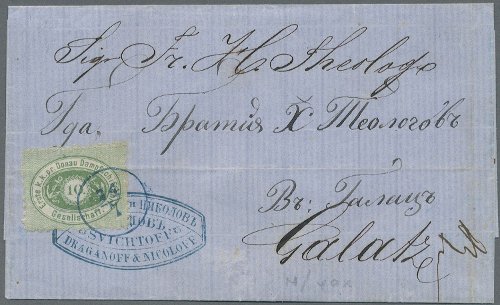 Sigr. Fr. H. Theologo
Гда. Братія Х. Теологовъ
Въ Галацъ
Galatz
Erste k. k. pr. Donau Dampfsch.
10
Gesellschaft.
НИКОЛОВЪ
SVICHTOFF
DRAGANOFF & NICOLOFF